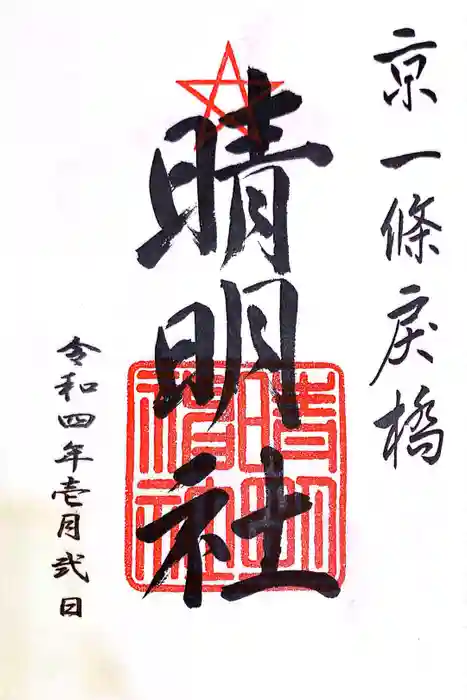 京一條戻橋
晴明社
令和四年壱月弐日